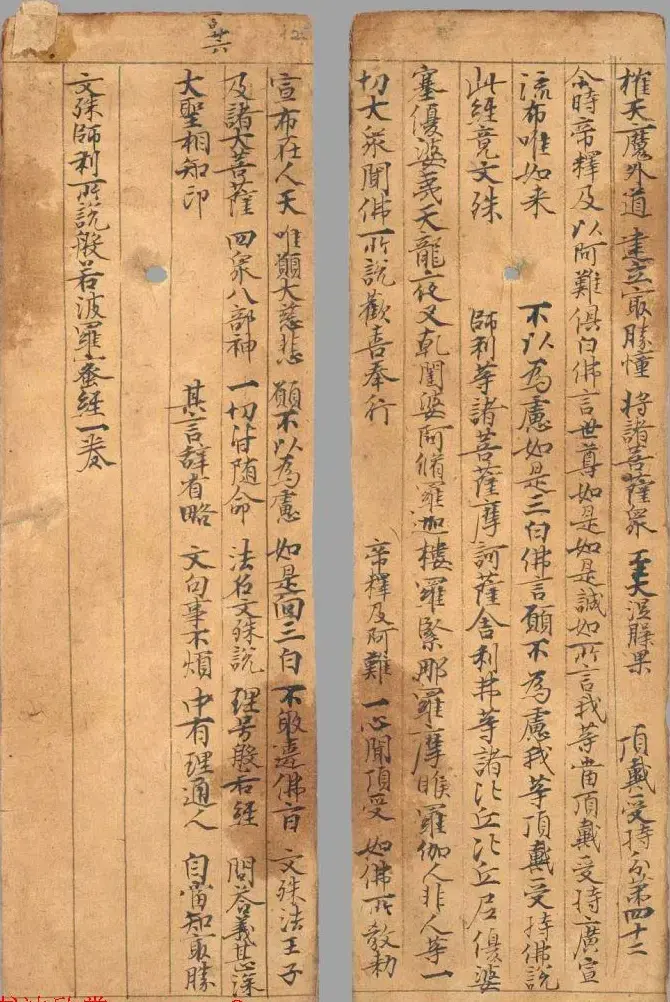 摧天魔外道 建立冣勝幢 將諸菩薩衆 至大涅槃果 頂戴受持分第四十二
尒時帝釋及以阿難俱白佛言世尊如是如是誠如所言我等當頂戴受持廣宣
流布唯如来 不以為慮如是三白佛言願不為慮我等頂戴受持佛說
此經竟文殊 師利等諸菩薩摩訶薩舍利弗等諸比丘比丘尼優婆
塞優婆夷天龍夜叉乾闥婆阿脩羅迦樓羅緊那羅摩睺羅伽人非人等一
切大衆聞佛所說歡喜奉行 帝釋及阿難 一心聞頂受 如佛所教勅
廿六
宣布在人天 唯願大慈悲 願不以為慮 如是面三白 不敢違佛言 文殊法王子
及諸大菩薩 四衆八部神 一切皆随命 法名文殊說 理号般若經 問荅義甚深
大聖相知印 其言辞省略 文句事不煩 中有理通人 自當知冣勝
文殊師利所說般若波羅蜜經一卷